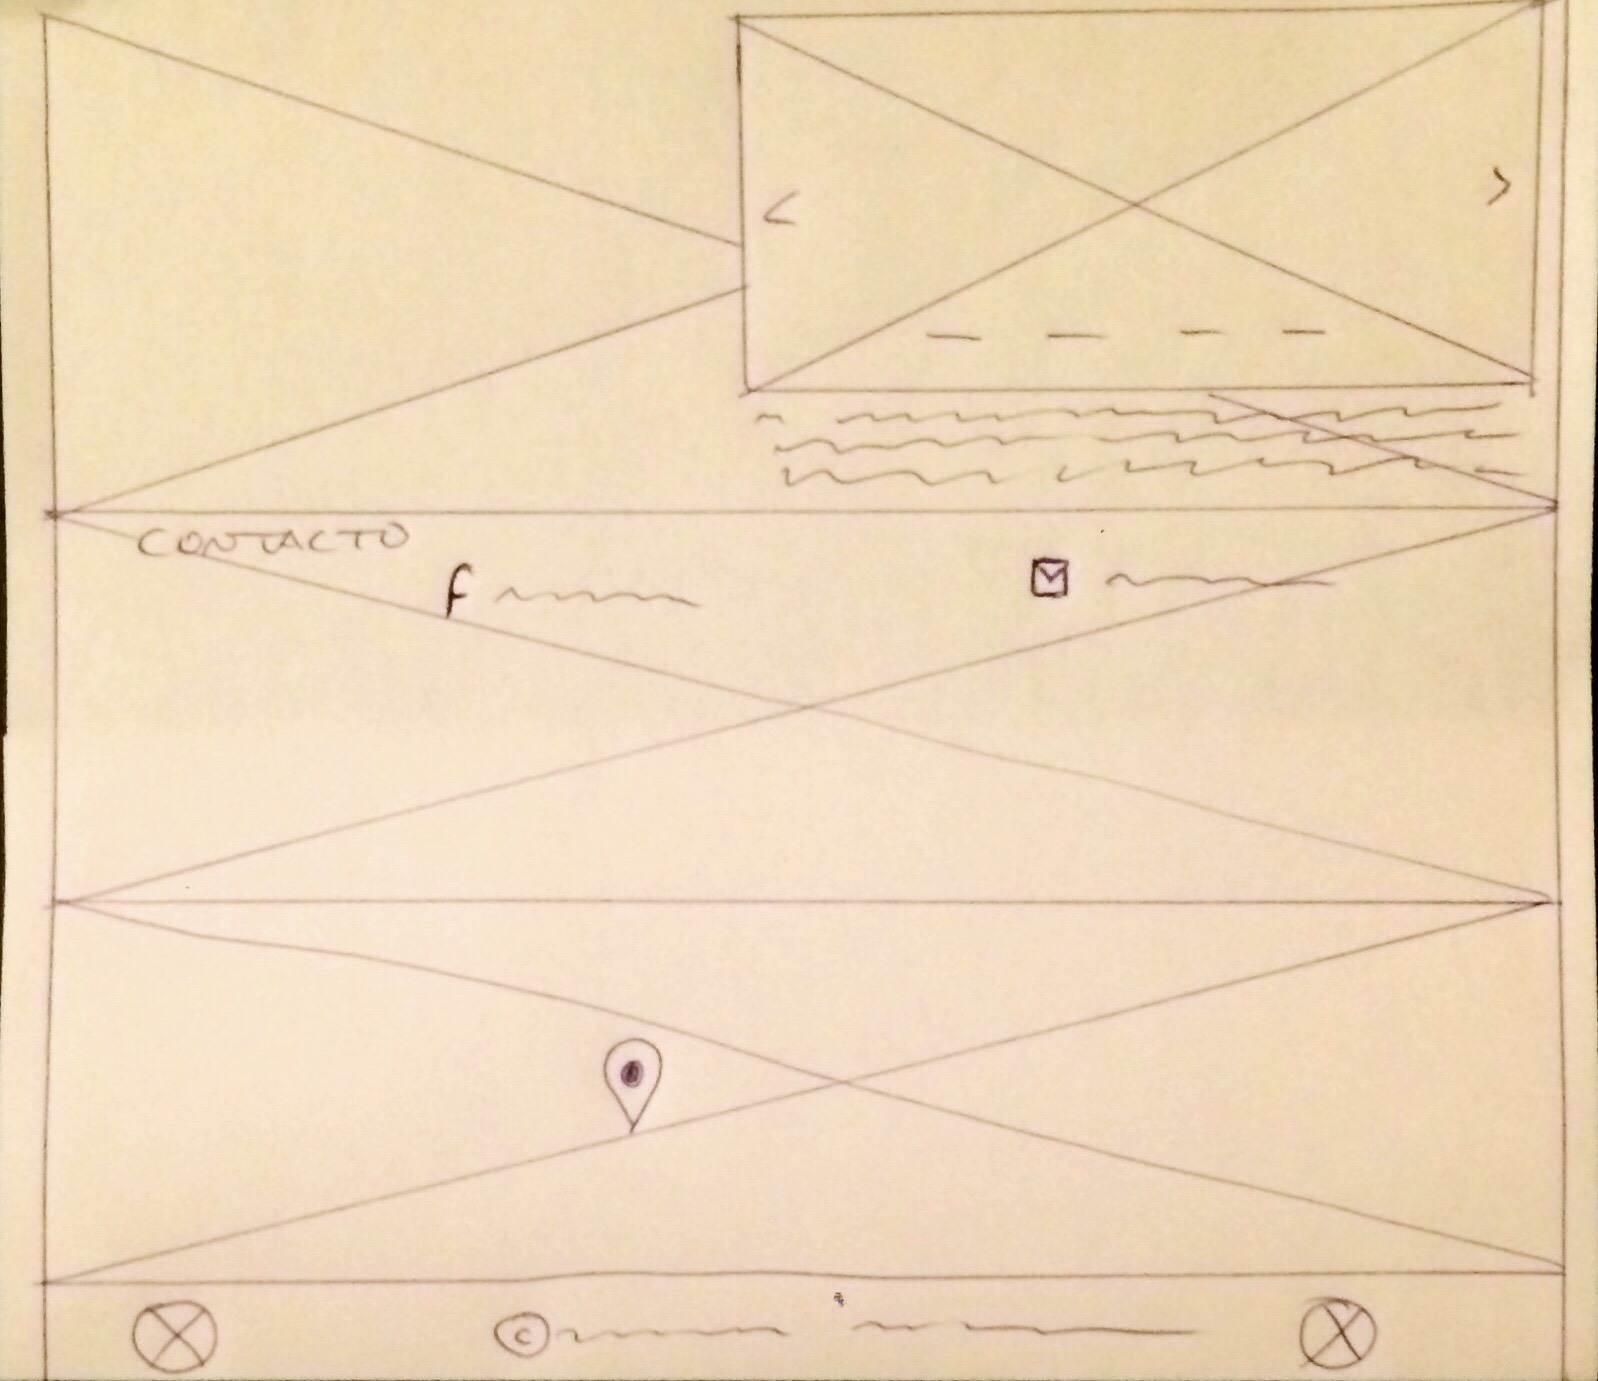 <
>
CONTACTO
f
©